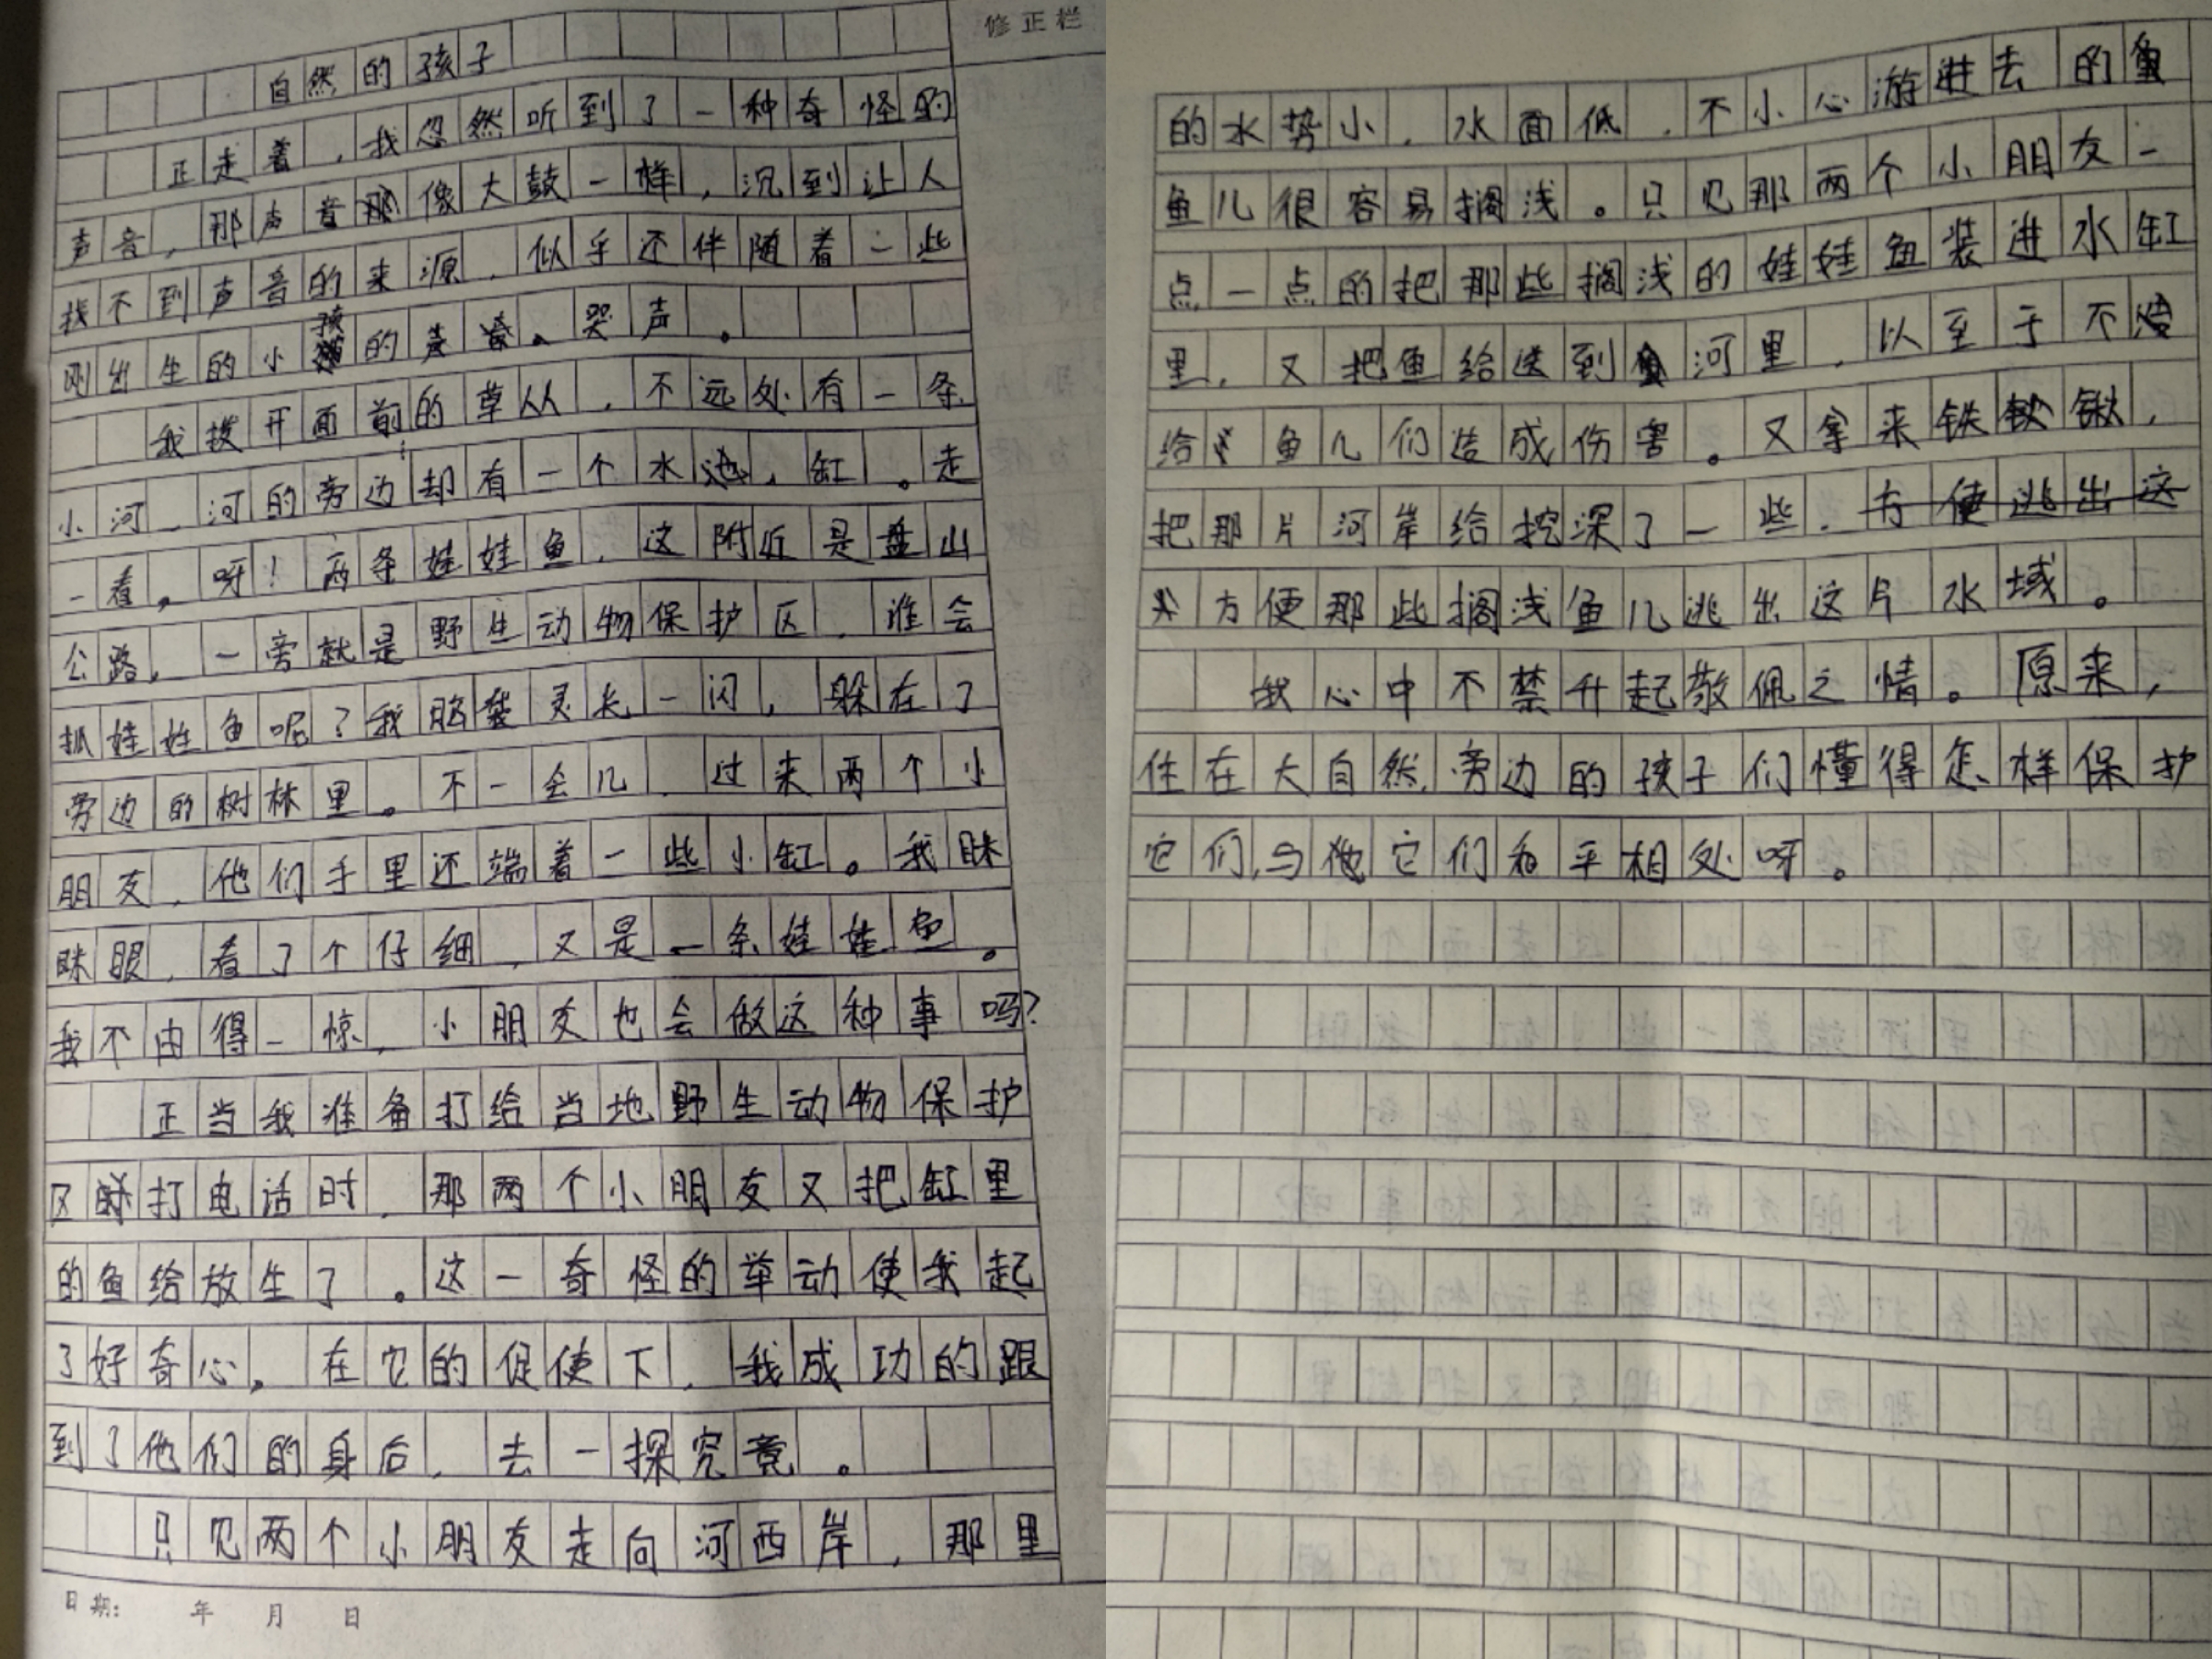 修正栏
自然的孩子
正走着，我忽然听到了一种奇怪的
声音，那声音像大鼓一样，沉到让人
找不到声音的来源，似乎还伴随着一些
刚出生的小孩的哭声。
我拨开面前的草丛，不远处有一条
小河，河的旁边却有一个水缸。走
一看，呀！两条娃娃鱼，这附近是盘山
公路，一旁就是野生动物保护区，谁会
抓娃娃鱼呢？我脑袋灵光一闪，躲在了
旁边的树林里。不一会儿，过来两个小
朋友，他们手里还端着一些小缸。我眯
眯眼，看了个仔细，又是一条娃娃鱼。
我不由得一惊，小朋友也会做这种事吗？
正当我准备打给当地野生动物保护
区打电话时，那两个小朋友又把缸里
的鱼给放生了。这一奇怪的举动使我起
了好奇心，在它的促使下，我成功的跟
到了他们的身后，去一探究竟。
只见两个小朋友走向河西岸，那里
日期： 年 月 日
的水势小，水面低，不小心游进去的
鱼儿很容易搁浅。只见那两个小朋友一
点一点的把那些搁浅的娃娃鱼装进水缸
里，又把鱼给送到河里，以至于不
给鱼儿们造成伤害。又拿来铁锹，
把那片河岸给挖深了一些，方便逃出这
方便那些搁浅鱼儿逃出这片水域。
我心中不禁升起敬佩之情。原来，
住在大自然旁边的孩子们懂得怎样保护
它们，与它们和平相处呀。